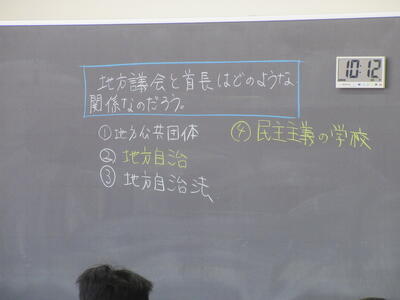 地方議会と首長はどのような
関係なのだろう。
①地方公共団体
②地方自治
③地方自治法
④民主主義の学校
10:12